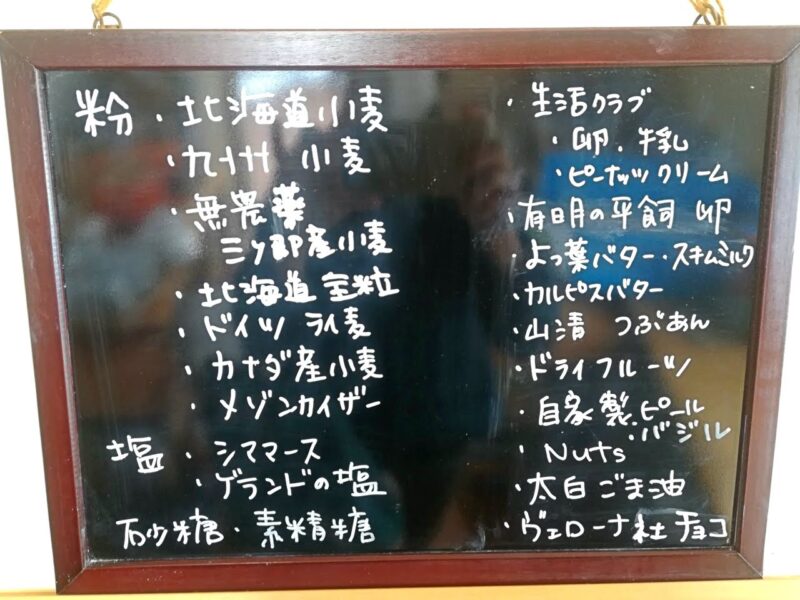 粉・北海道小麦
・九州 小麦
・無農薬
三ケ郎産小麦
・北海道全粒
・ドイツ ライ麦
・カナダ産小麦
・メゾンカイザー
塩・シママース
・ゲランドの塩
砂糖・素精糖
・生活クラブ
・卵・牛乳
・ピーナッツクリーム
・有明の平飼 卵
・よつ葉バター・スキムミルク
・カルピスバター
・山清 つぶあん
・ドライフルーツ
・自家製・ピール
・バジル
・Nuts
・太白ごま油
・ヴェローナ社チョコ